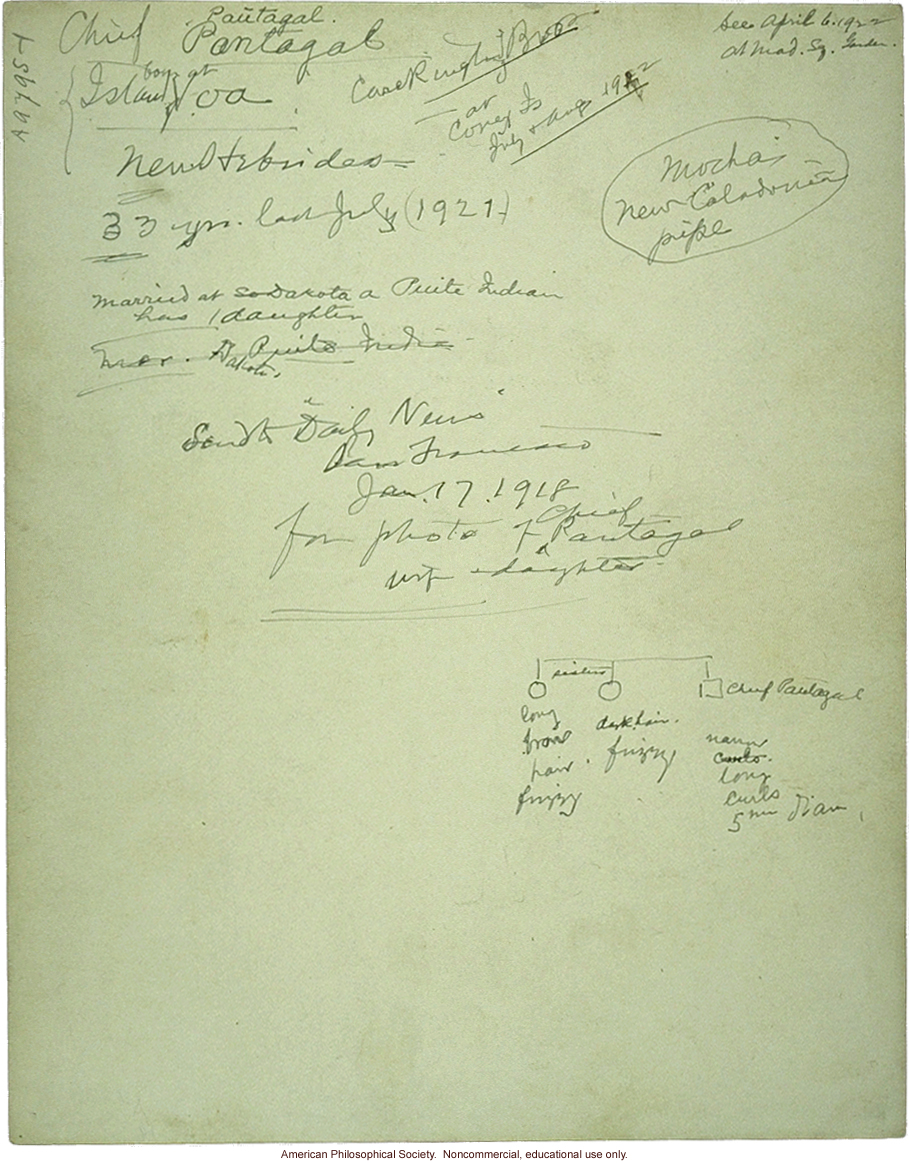 Pautagal.
Chief Pantagal
see April 6. 1922
at Mad. Sq. Garden.
Care Ringling Bros
at
Coney Is
July & Aug 1922
born at
Island Voa
New Hebrides
Mocha
New Caledonia
pipe
33 yrs. last July (1921)
Married at So Dakota a Puite Indian
has 1 daughter
Mar. Puite India
Dakota.
Send to "Daily News"
San Francisco
Jan. 17. 1918
for photo of Chief Pautagal
wife + daughter
sisters
Chief Pautagal
long
brown
hair.
frizzy
dark hair.
frizzy
narrow
curls.
long
curls
5 mm diam
American Philosophical Society. Noncommercial, educational use only.